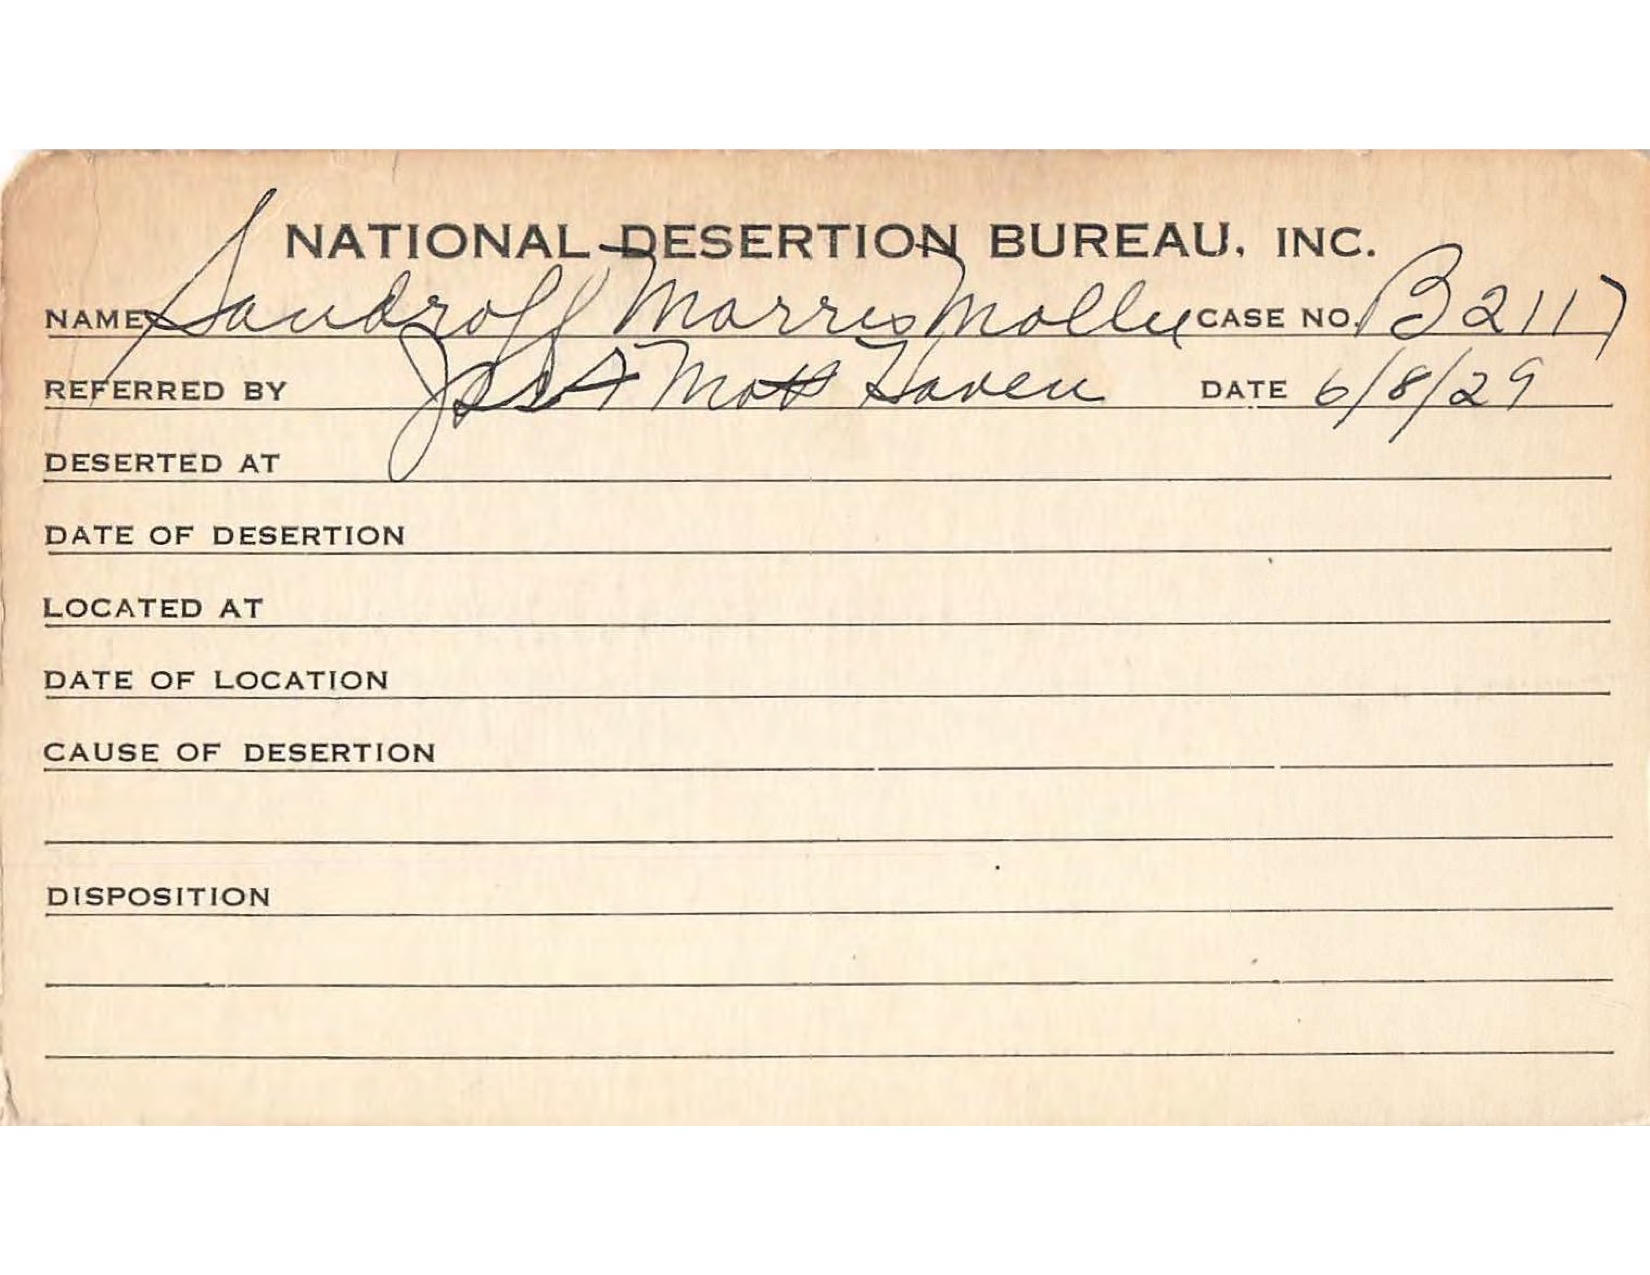 NATIONAL DESERTION BUREAU, INC.
NAME Sandroff Morris Mollie CASE NO. B2117
REFERRED BY JSSA Mott Haven DATE 6/8/29
DESERTED AT
DATE OF DESERTION
LOCATED AT
DATE OF LOCATION
CAUSE OF DESERTION
DISPOSITION